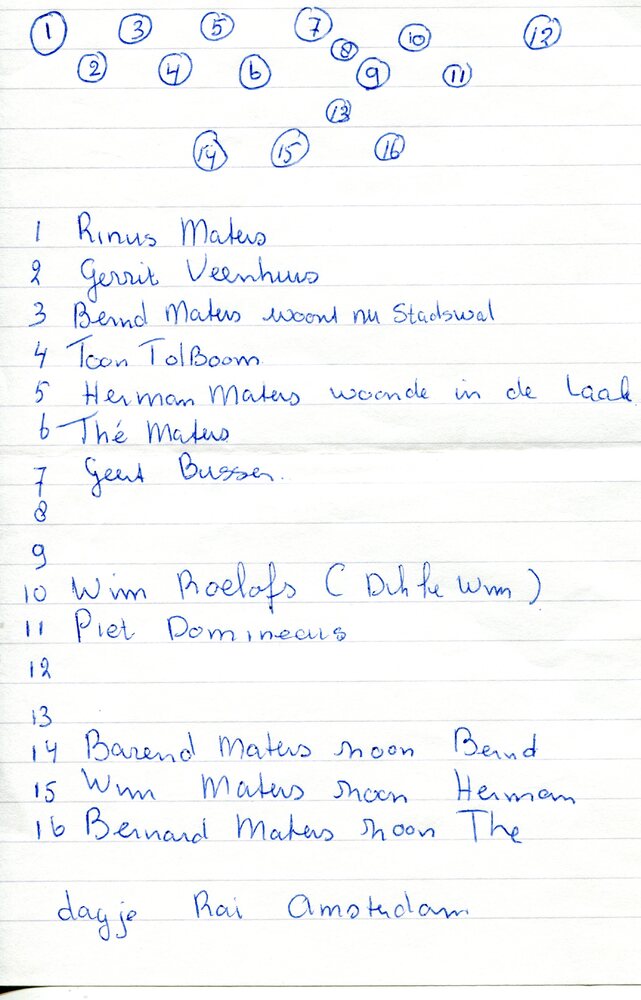 1 3 5 7 8 10 12
2 4 6 9 11
13
14 15 16
1 Rinus Maters
2 Gerrit Veenhuis
3 Bernd Maters woont nu Stadswal
4 Toon TolBoom
5 Herman Maters woonde in de Laak
6 Thé Maters
7 Geert Busser.
8
9
10 Wim Roelofs (Dikke Wim)
11 Piet Domineaus
12
13
14 Barend Maters zoon Bernd
15 Wim Maters zoon Herman
16 Bernard Maters zoon The
dagje Rai Amsterdam